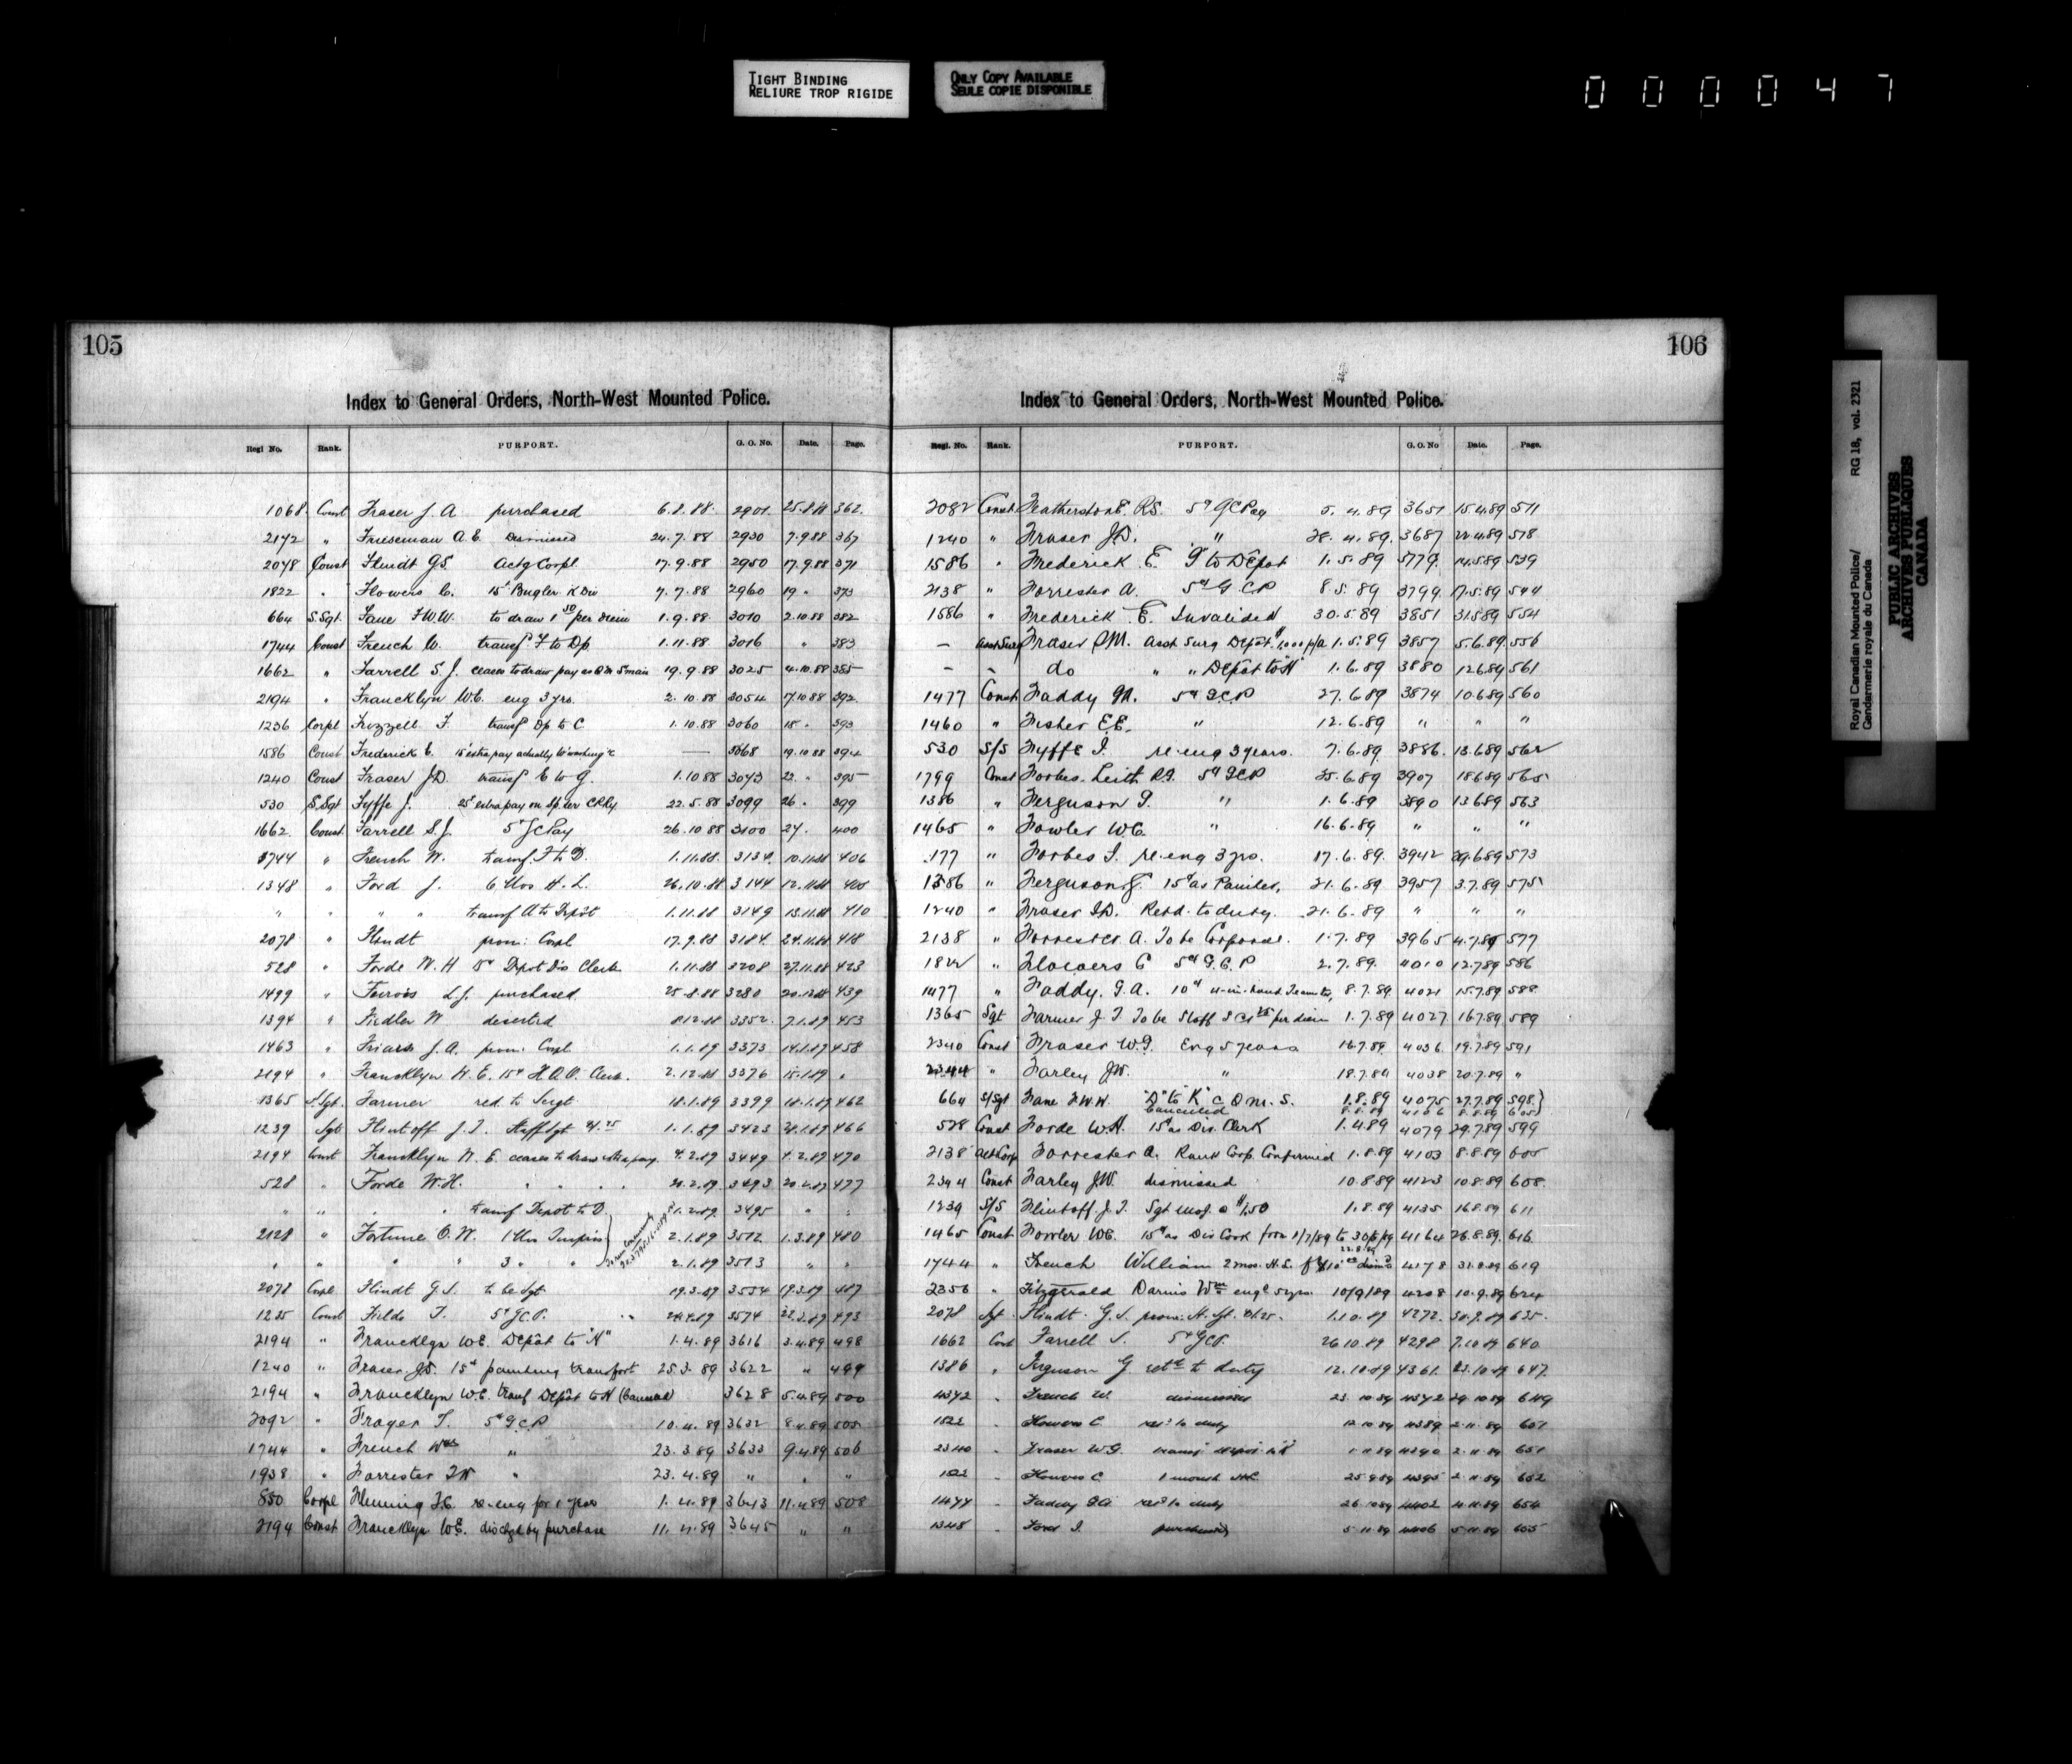 TIGHT BINDING
RELIURE TROP RIGIDE
ONLY COPY AVAILABLE
SEULE COPIE DISPONIBLE
000047
105
Index to General Orders, North-West Mounted Police.
Regl No. Rank. PURPORT. G. O. No. Date. Page.
1068 Const Fraser J. A purchased 6.8.88 2901 25.8.88 362
2172 " Frieseman A. E. Dismissed 24.7.88 2930 7.9.88 367
2078 Const Flindt G.S. Actg Corpl 17.9.88 2950 17.9.88 371
1822 " Flowers C. 15¢ Bugler K Div 7.7.88 2960 19 " 373
664 S.Sgt. Fane F.W.W. to draw 1 50 per diem 1.9.88 3010 2.10.88 382
1744 Const French W. transf F to Dp 1.11.88 3016 " 383
1662 " Farrell S. J. ceases to draw pay as 19.9.88 3025 4.10.88 385
2194 " Francklyn W.E. eng 3 yrs. 2.10.88 3054 17.10.88 392
1236 Corpl Frizzell F. transf Dp to C 1.10.88 3060 18 " 393
1586 Const Frederick E. 15¢ extra pay actually — 3068 19.10.88 394
1240 Const Fraser J.D. transf E to G. 1.10.88 3073 22 " 395
530 S.Sgt Fyffe J. 25¢ extra pay on Sp ser CPRy 22.5.88 3099 26 " 399
1662 Const Farrell S.J. 5¢ GC Pay 26.10.88 3100 27 " 400
1744 " French W. transf F to D. 1.11.88 3134 10.11.88 406
1348 " Ford J. 6 Mos H. L. 26.10.88 3144 12.11.88 408
" " " " transf A to Depôt 1.11.88 3149 13.11.88 410
2078 " Flindt prom: Corpl 17.9.88 3184 24.11.88 418
528 " Forde W. H 15¢ Depot Div Clerk 1.11.88 3208 27.11.88 423
1499 " L.J. purchased 25.8.88 3280 20.12.88 439
1394 " Fiedler W deserted 8.12.88 3352 7.1.89 453
1463 " Friars J.A. prom: Corpl 1.1.89 3373 14.1.89 458
2194 " Francklyn W. E. 15¢ Clerk. 2.12.88 3376 15.1.89 "
1365 S.Sgt. Farmer red. to Sergt 18.1.89 3399 18.1.89 462
1239 Sgt Flintoff J. T. Staff Sgt 1.1.89 3423 1.89 466
2194 Const Francklyn W. E. ceases to draw extra pay 4.2.89 3449 4.2.89 470
528 " Forde W.H. " " " 20.2.89 3493 20.2.89 477
" " " " transf Depot to D. 1.2.89 3495 " "
2128 " Fortune O. W. 1 Mo Impris 2.1.89 3512 1.3.89 480
" " " 3 " " 2.1.89 3513 " "
2078 Corpl Flindt G.S. to be Sgt. 19.3.89 3554 19.3.89 487
1235 Const Fields T. 5¢ GCP. 3574 22.3.89 493
2194 " Francklyn W.E. Depôt to "H" 1.4.89 3616 3.4.89 498
1240 " Fraser J.D. 15¢ painting transport 25.3.89 3622 " 499
2194 " Francklyn W.E. transf Depôt to H (Cancelled) 3628 5.4.89 500
2092 " Frager T. 5¢ G.C.P. 10.4.89 3632 8.4.89 505
1744 " French Wm " 23.3.89 3633 9.4.89 506
1938 " Forrester " 23.4.89 " " "
850 Corpl Fleming re-eng for 1 year 1.4.89 3643 11.4.89 508
2194 Const Francklyn W.E. dischgd by purchase 11.4.89 3645 " "
106
Index to General Orders, North-West Mounted Police.
Regl. No. Rank. PURPORT. G. O. No Date. Page.
2082 Const Featherstone R.S. 5¢ GC Pay 5.4.89 3651 15.4.89 511
1240 " Fraser J.D. " 28.4.89 3687 22.4.89 518
1586 " Frederick E. "G" to Depôt 1.5.89 3779 14.5.89 539
2138 " Forrester A. 5¢ G CP 8.5.89 3799 17.5.89 544
1586 " Frederick E. Invalided 30.5.89 3851 31.5.89 554
— Asst Surg Fraser S.M. Asst Surg Depôt $1,000 p/a 1.5.89 3857 5.6.89 556
— " do " " Depôt to "H" 1.6.89 3880 12.6.89 561
1477 Const Faddy G.A. 5¢ G.C.P 27.6.89 3874 10.6.89 560
1460 " Fisher E.E. " 12.6.89 " " "
530 S/S Fyffe J. re-eng 3 years. 7.6.89 3886 13.6.89 562
1799 Const Forbes-Leith R.J. 5¢ GCP 25.6.89 3907 18.6.89 565
1386 " Ferguson G. " 1.6.89 3890 13.6.89 563
1465 " Fowler W.C. " 16.6.89 " " "
177 " Forbes J. re-eng 3 yrs. 17.6.89 3942 29.6.89 573
1386 " Ferguson G. 15¢ as Painter. 21.6.89 3957 3.7.89 575
1240 " Fraser J.D. Retd. to duty. 21.6.89 " " "
2138 " Forrester A. To be Corporal. 1.7.89 3965 4.7.89 577
1822 " Flowers C 5¢ G.C.P 2.7.89 4010 12.7.89 586
1477 " Faddy. G.A. 10¢ 4-in-hand Teamster, 8.7.89 4021 15.7.89 588
1365 Sgt Farmer J. T. To be Staff S per diem 1.7.89 4027 16.7.89 589
2340 Const Fraser W.G. Eng 5 years 16.7.89 4036 19.7.89 591
2344 " Farley J.W. " 18.7.89 4038 20.7.89 "
664 S/Sgt Fane F.W.W. "D" to "K" Q.M.S. 1.8.89 4075 27.7.89 598
Cancelled 8.8.89 4106 8.8.89 605
528 Const Forde W.H. 15¢ as Div. Clerk 1.4.89 4079 29.7.89 599
2138 Act Corp Forrester A. Rank Corp. Confirmed 1.8.89 4103 8.8.89 605
2344 Const Farley J.W. dismissed 10.8.89 4123 10.8.89 608
1239 S/S Flintoff J. T. Sgt Maj. @ $1.50 1.8.89 4135 16.8.89 611
1465 Const Fowler W.C. 15¢ as Div Cook from 1/7/89 to 30/9/89 4164 26.8.89 616
1744 " French William 2 mos. H.L. 22.8.89 4178 31.8.89 619
2356 " Fitzgerald Darius Wm engd 5 yrs. 10/9/89 4208 10.9.89 624
2078 Sgt Flindt G.S. prom. St. Sgt. 1.10.89 4272 30.9.89 635
1662 Const Farrell S. 5¢ GCP. 26.10.89 4298 7.10.89 640
1386 " Ferguson G retd to duty 12.10.89 4361 23.10.89 647
" French W. dismissed 23.10.89 4372 29.10.89 649
1822 " Flowers C. retd to duty 12.10.89 4389 2.11.89 651
2340 " Fraser W.G. transf. depot to "K" 1.11.89 4390 2.11.89 651
" Flowers C 1 month 25.9.89 4395 2.11.89 652
1477 " Faddy G.A. retd to duty 26.10.89 4402 4.11.89 654
1348 " Ford J. purchased 5.11.89 4406 5.11.89 655
Royal Canadian Mounted Police/ RG 18, vol. 2321
Gendarmerie royale du Canada
PUBLIC ARCHIVES
ARCHIVES PUBLIQUES
CANADA